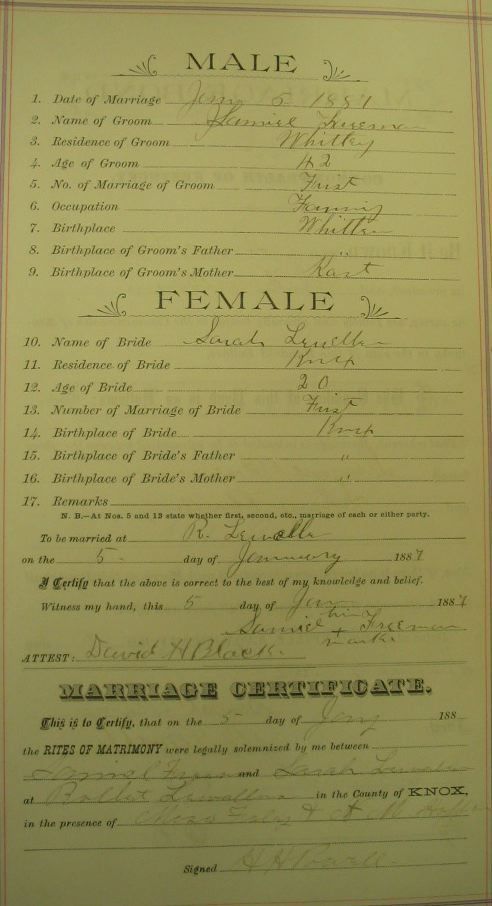 MALE
1. Date of Marriage Jany 5 1887
2. Name of Groom Samuel Freeman
3. Residence of Groom Whitley
4. Age of Groom 42
5. No. of Marriage of Groom First
6. Occupation
7. Birthplace Whitley
8. Birthplace of Groom's Father
9. Birthplace of Groom's Mother
FEMALE
10. Name of Bride Sarah Lewallen
11. Residence of Bride Knox
12. Age of Bride 20
13. Number of Marriage of Bride First
14. Birthplace of Bride Knox
15. Birthplace of Bride's Father "
16. Birthplace of Bride's Mother "
17. Remarks
N. B.—At Nos. 5 and 13 state whether first, second, etc., marriage of each or either party.
To be married at R. Lewallen
on the 5 day of January 1887
I Certify that the above is correct to the best of my knowledge and belief.
Witness my hand, this 5 day of Jan 1887
Samuel his + mark Freeman
ATTEST: David H Black
MARRIAGE CERTIFICATE.
This is to Certify, that on the 5 day of Jany 188
the RITES OF MATRIMONY were legally solemnized by me between
Samuel Freeman and Sarah Lewallen
at Lewallens in the County of KNOX,
in the presence of
Signed H H Powell